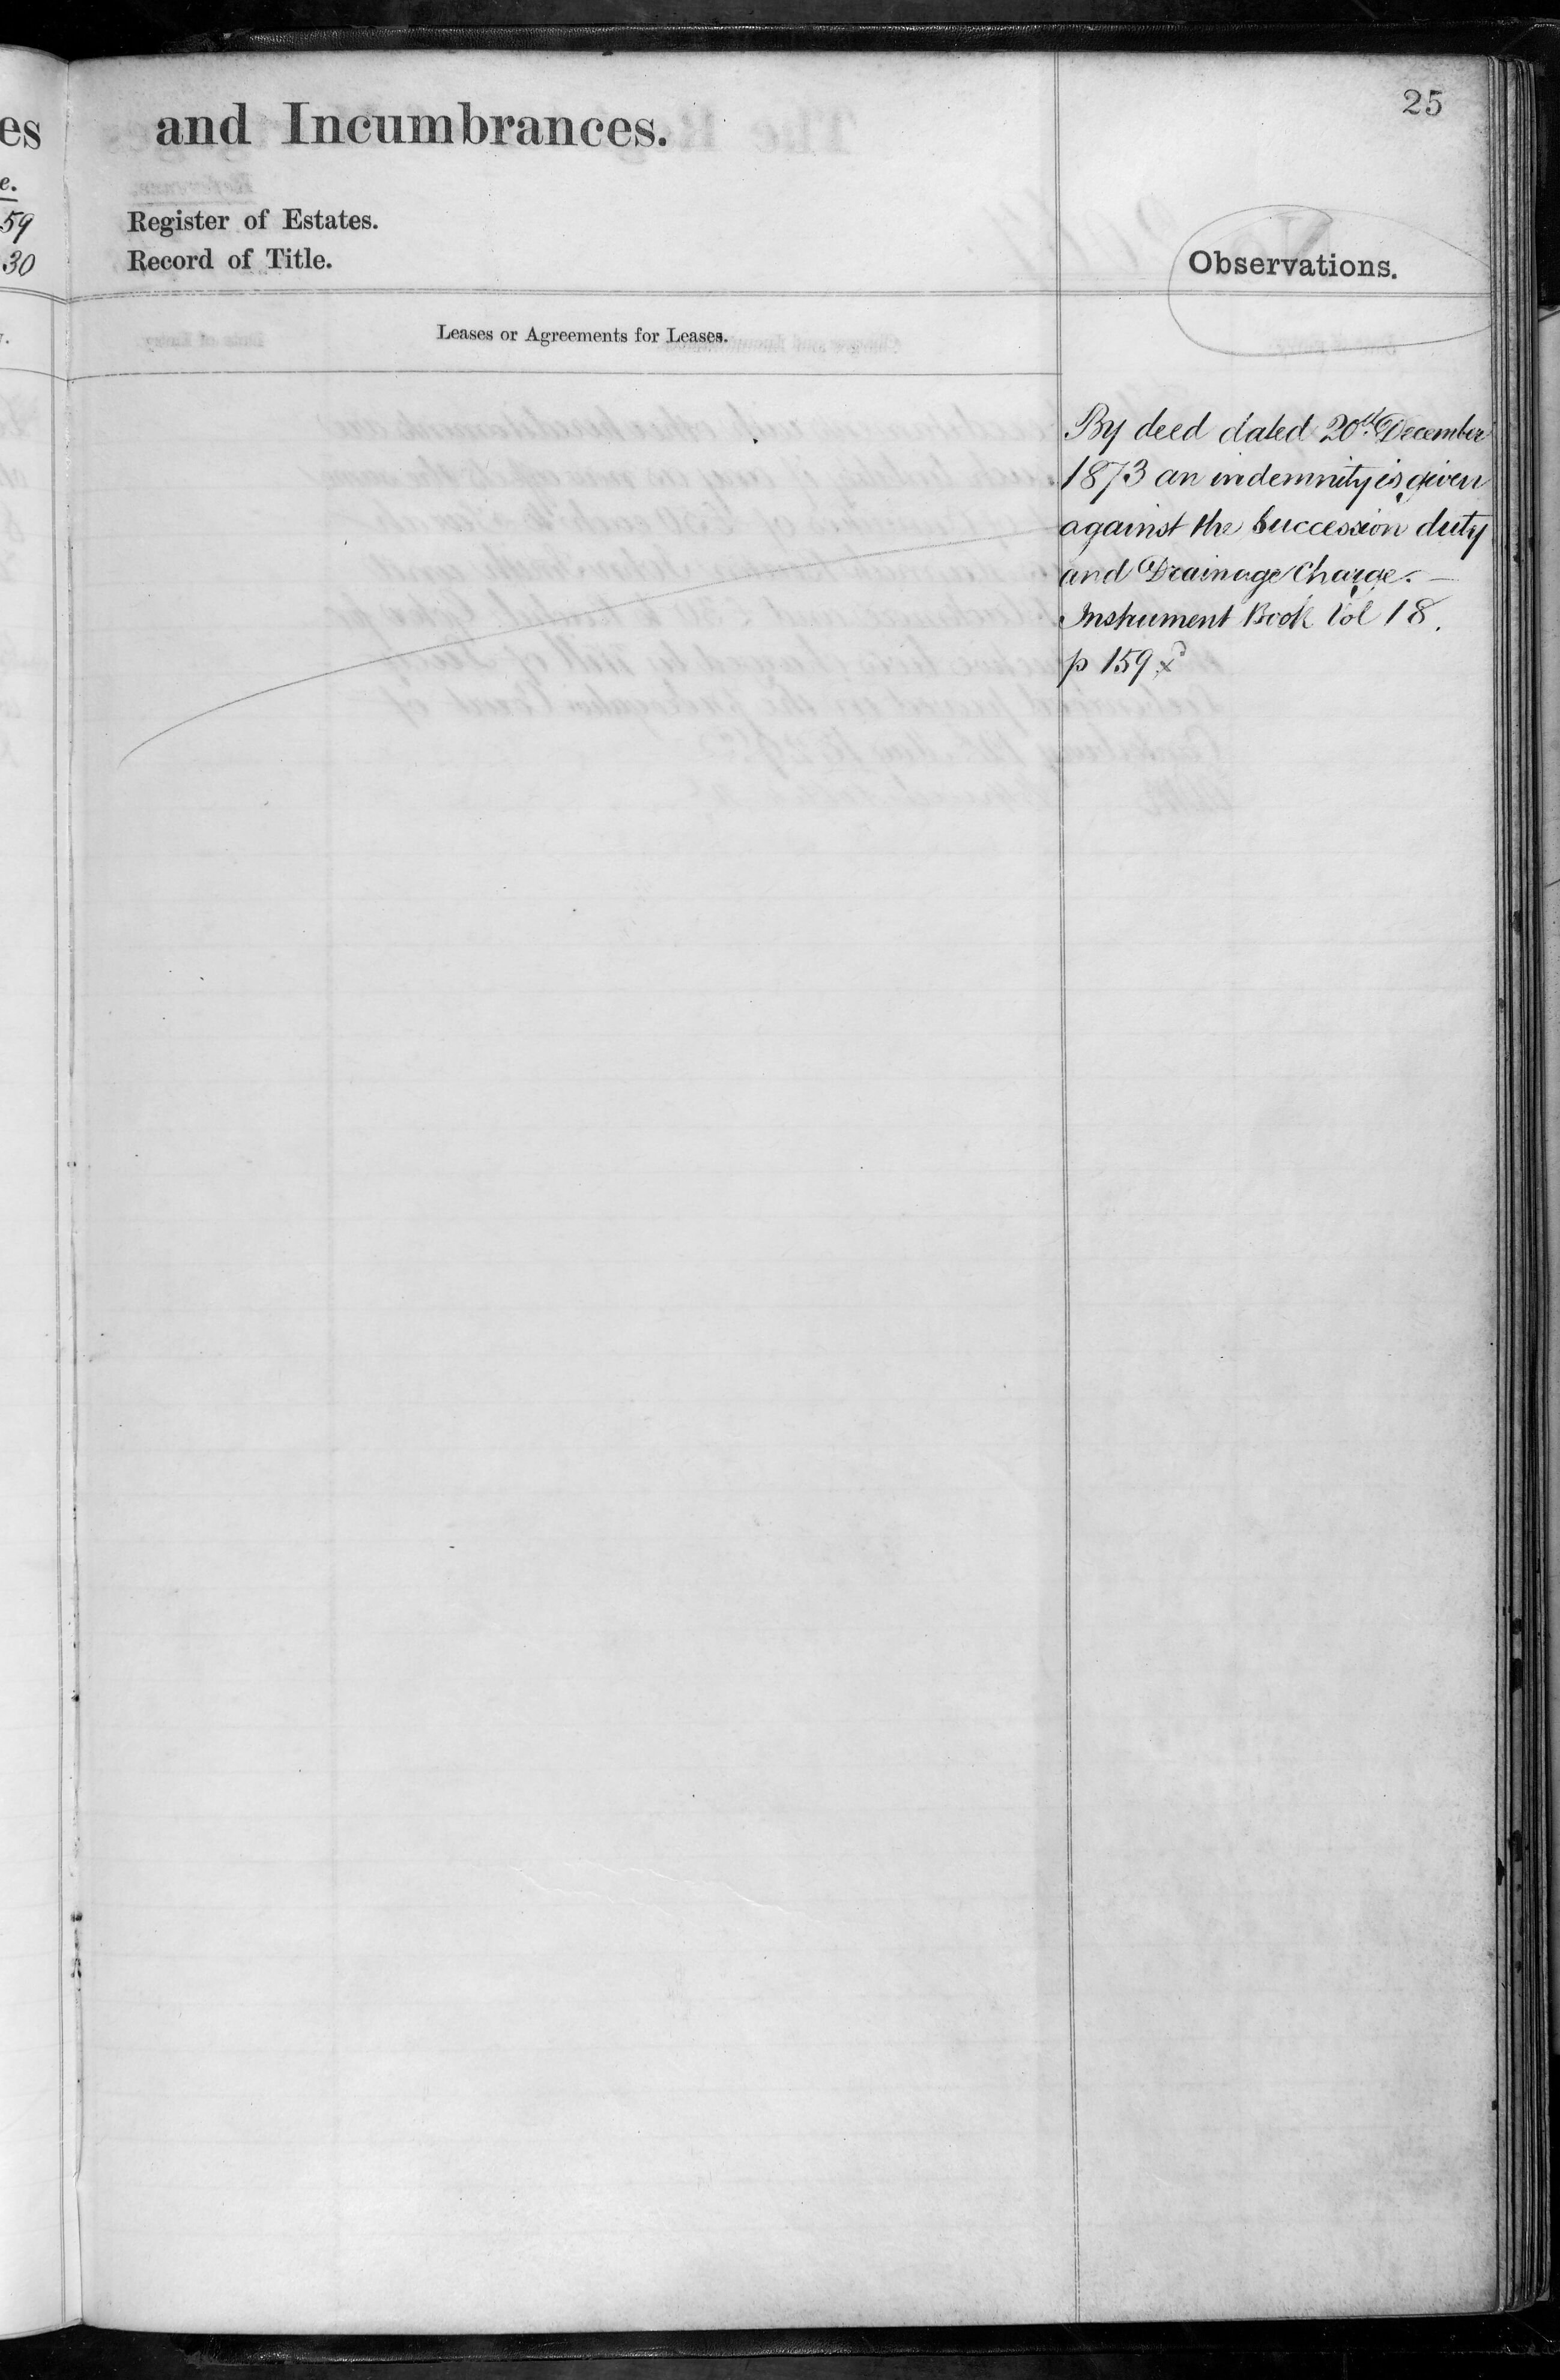 es
e.
59
30
and Incumbrances.
25
Register of Estates.
Record of Title.
Observations.
Leases or Agreements for Leases.
By deed dated 20th December
1873 an indemnity is given
against the Succession duty
and Drainage Charge. —
Instrument Book Vol 18.
p 159